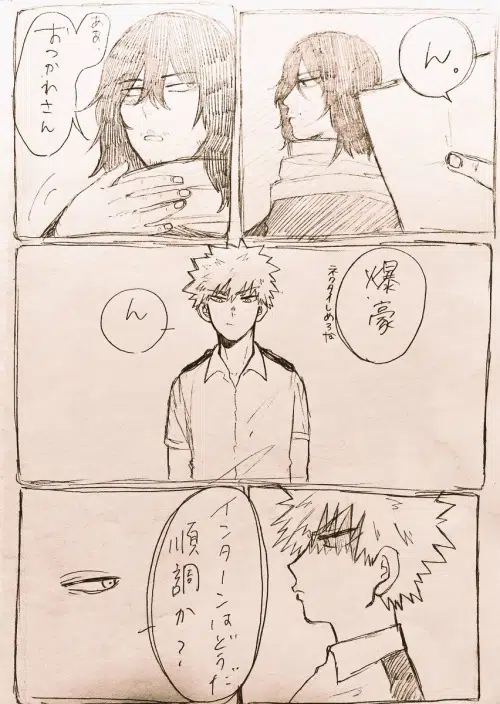 ん。
ああ
おつかれさん
爆豪
ネクタイしめろな
ん
インターンはどうだ
順調か?